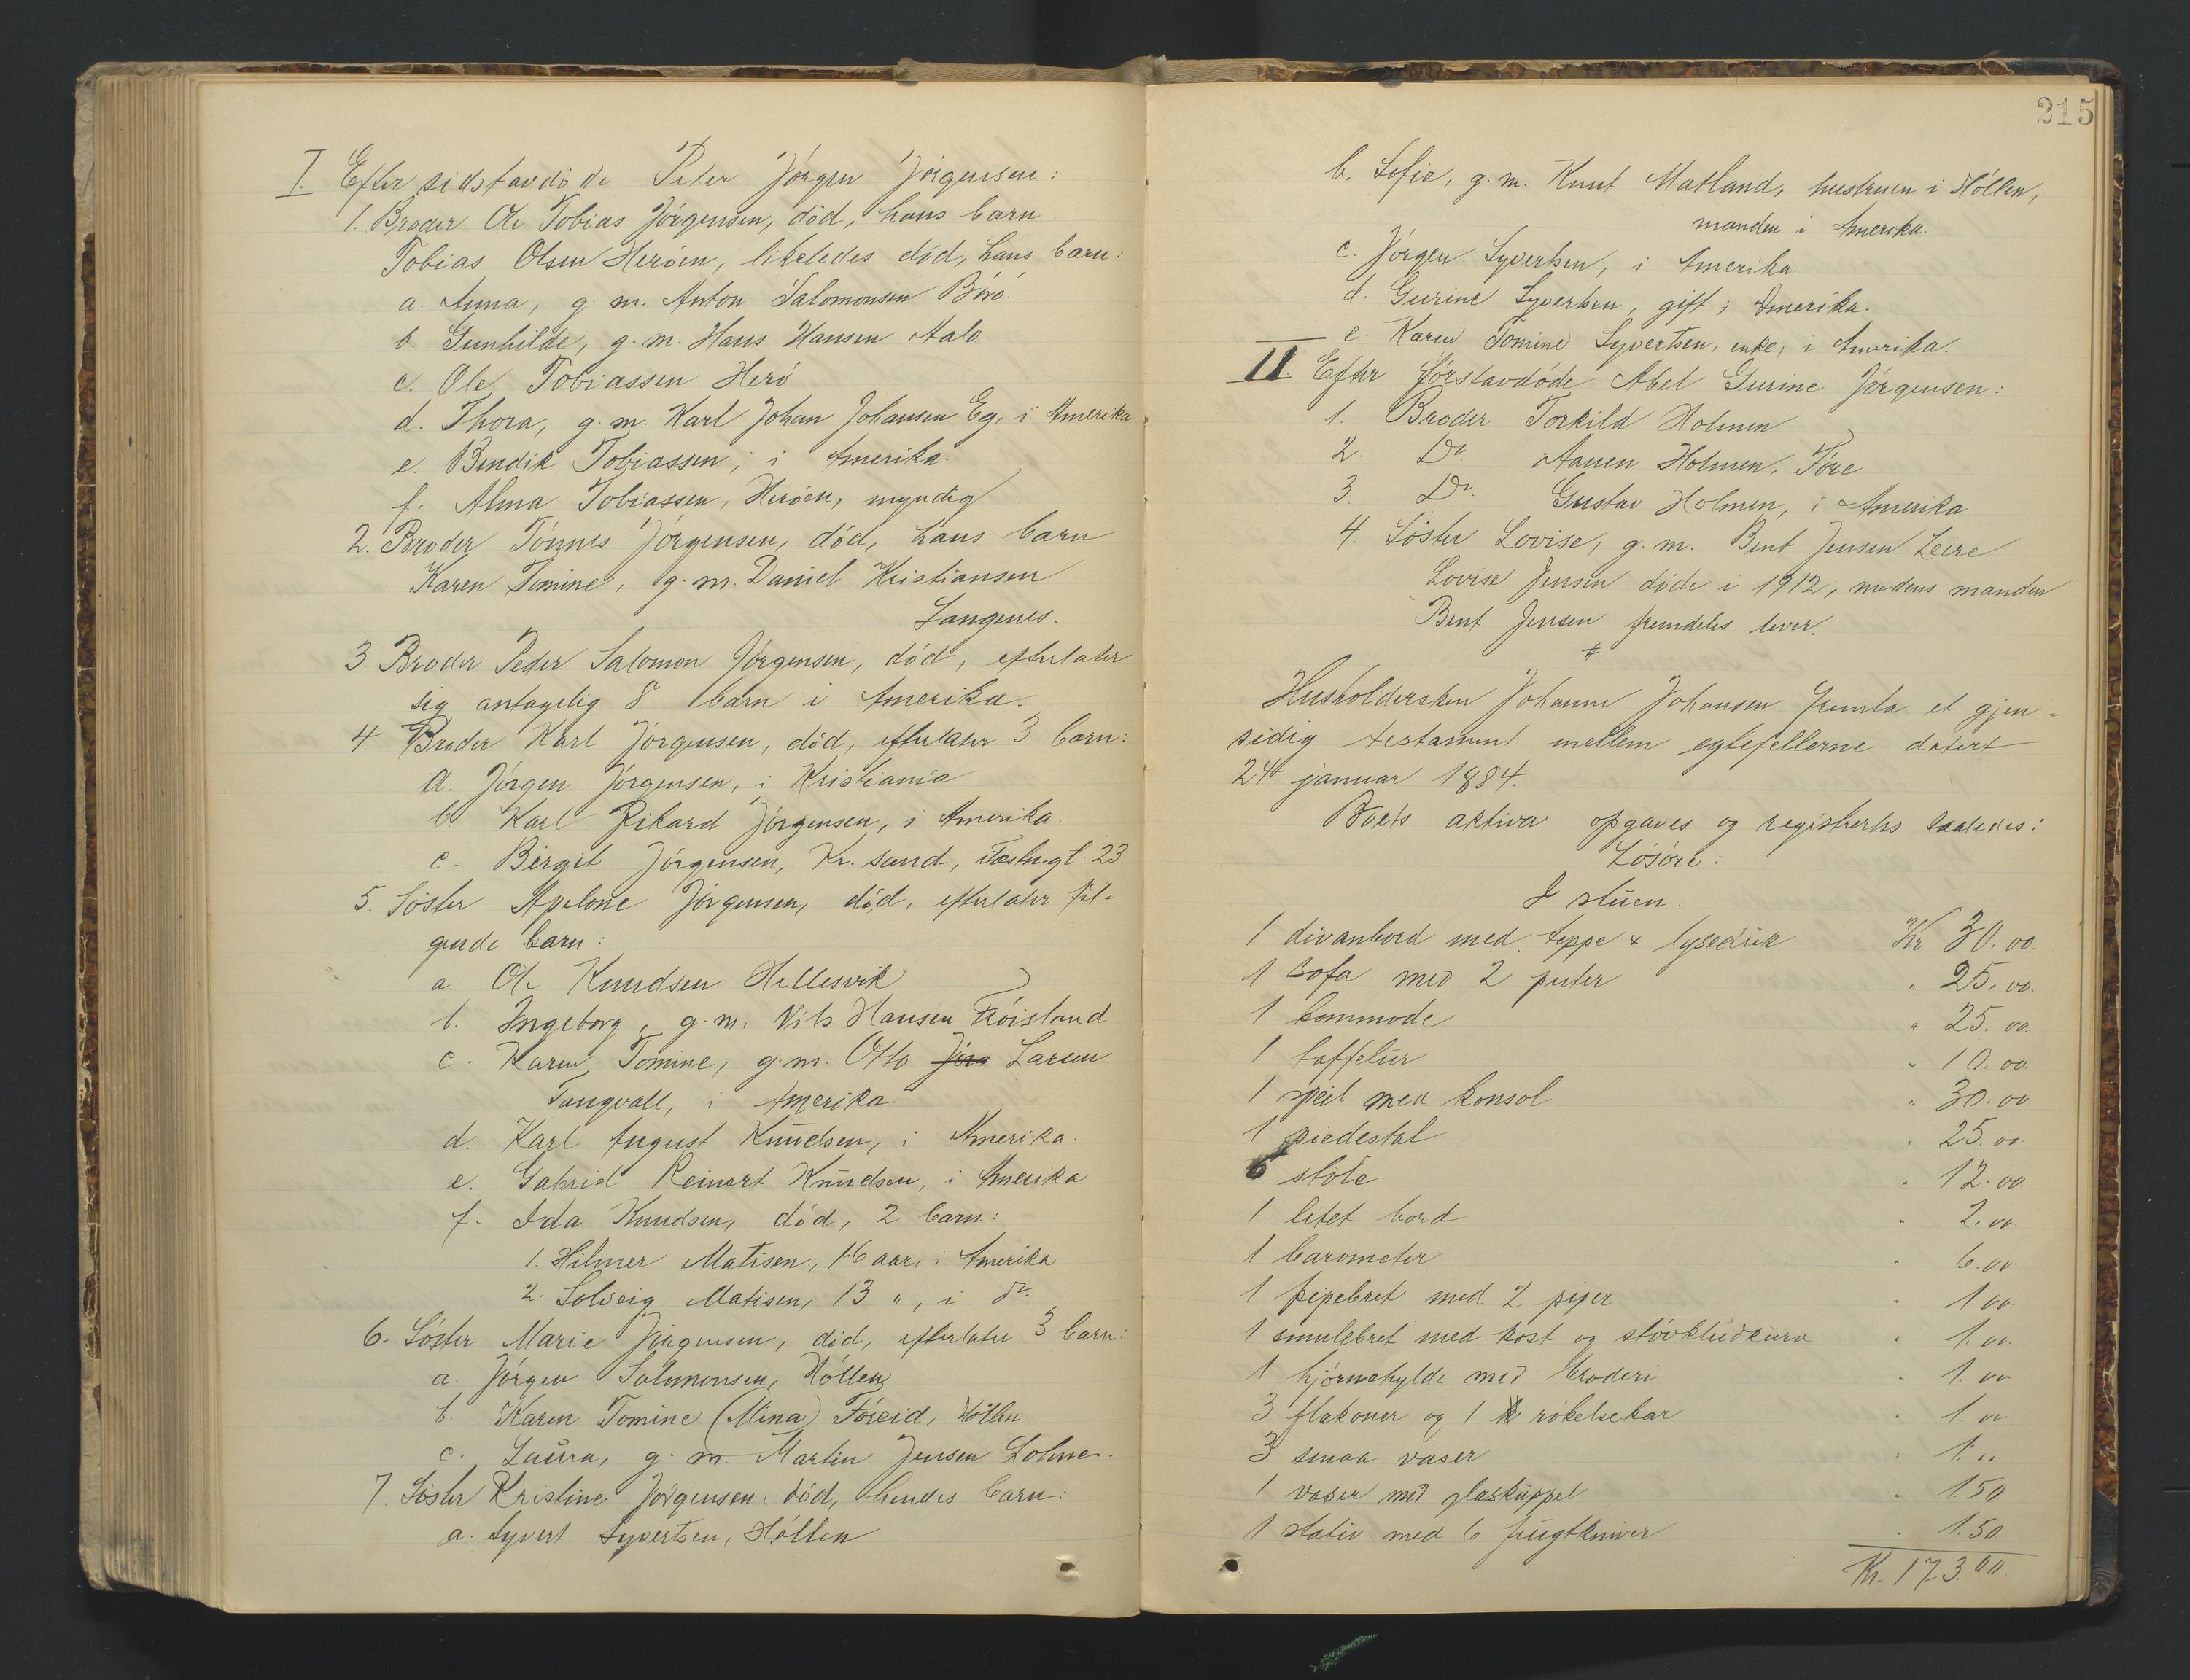 I. Efter sidstavdøde Peter Jørgen Jørgensen:
1. Broder Ole Tobias Jørgensen, død, hans barn
Tobias Olsen Herøen, likeledes død, hans barn:
a. Anna, g. m. Anton Salomonsen Borø.
b. Gunhilde, g. m. Hans Hansen Aalo.
c. Ole Tobiassen Herø
d. Thora, g. m. Karl Johan Johansen Eg, i Amerika
e. Bendik Tobiassen, i Amerika.
f. Alma Tobiassen, Herøen, myndig
2. Broder Tønnes Jørgensen, død, hans barn
Karen Tomine, g. m. Daniel Kristiansen
Langenes.
3. Broder Peder Salomon Jørgensen, død, efterlater
sig antagelig 8 barn i Amerika.
4. Broder Karl Jørgensen, død, efterlater 3 barn:
a. Jørgen Jørgensen, i Kristiania
b. Karl Rikard Jørgensen, i Amerika.
c. Birgit Jørgensen, Kr.sand, Fæstn.gt. 23
5. Søster Apelone Jørgensen, død, efterlater føl-
gende barn:
a. Ole Knudsen Hellesvik
b. Ingeborg, g. m. Nils Hansen Frøisland
c. Karen Tomine, g. m. Otto Jørg Larsen
Tangvall, i Amerika.
d. Karl August Knudsen, i Amerika.
e. Gabriel Reinert Knudsen, i Amerika
f. Ida Knudsen, død, 2 barn:
1. Hilmer Matisen, 16 aar, i Amerika
2. Solveig Matisen, 13 ", i do.
6. Søster Marie Jørgensen, død, efterlater 3 barn:
a. Jørgen Salomonsen, Høllen
b. Karen Tomine (Mina) Føreid, Høllen
c. Laura, g. m. Martin Jensen Lohne.
7. Søster Kristine Jørgensen, død, hendes barn:
a. Syvert Syvertsen, Høllen
215
b. Sofie, g. m. Knut Matland, hustruen i Høllen,
manden i Amerika.
c. Jørgen Syvertsen, i Amerika.
d. Gurine Syvertsen, gift i Amerika.
e. Karen Tomine Syvertsen, enke, i Amerika.
II. Efter førstavdøde Abel Gurine Jørgensen:
1. Broder Torkild Holmen
2. Do. Aanen Holmen, Føre
3. Do. Gustav Holmen, i Amerika
4. Søster Lovise, g. m. Bent Jensen Leire
Lovise Jensen døde i 1912, medens manden
Bent Jensen fremdeles lever.
Husholdersken Johanne Johansen fremla et gjen-
sidig testament mellem egtefellerne datert
24 januar 1884.
Boets aktiva opgaves og registrertes saaledes:
Løsøre:
I stuen:
1 divanbord med teppe & lysedük Kr 30.00.
1 sofa med 2 puter " 25.00.
1 kommode " 25.00.
1 taffelür " 10.00
1 speil med konsol " 30.00
1 piedestal " 25.00.
6 stole " 12.00.
1 litet bord " 2.00.
1 barometer " 6.00.
1 pipebret med 2 piper " 1.00.
1 smulebret med kost og støvklüdkurv " 1.00.
1 hjørnehylde med broderi " 1.00
3 flakoner og 1 røkelsekar " 1.00.
3 smaa vaser " 1.00
1 vaser med glasküppel " 1.50
1 stativ med 6 frugtkniver " 1.50
Kr. 173.00.